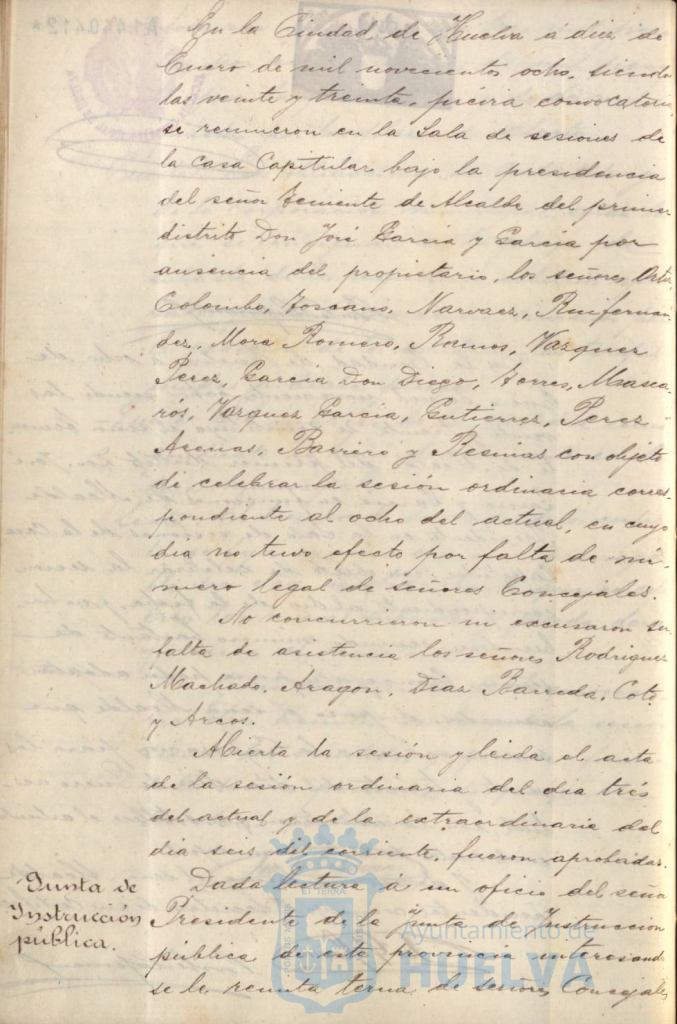 En la Ciudad de Huelva á diez de
Enero de mil novecientos ocho, siendo
las veinte y treinta, prévia convocatoria
se reunieron en la Sala de sesiones de
la casa Capitular bajo la presidencia
del señor Teniente de Alcalde del primer
distrito Don José Garcia y Garcia por
ausencia del propietario, los señores
Colombo, Toscano, Narvaez, Ruifernan-
dez, Mora Romero, Ramos, Vazquez
Perez, Garcia Don Diego, Torres, Masca-
rós, Vazquez Garcia, Gutierrez, Perez
Arenas, Barrero y Resinas con objeto
de celebrar la sesión ordinaria corres-
pondiente al ocho del actual, en cuyo
dia no tuvo efecto por falta de nú-
mero legal de señores Concejales.
No concurrieron ni excusaron su
falta de asistencia los señores Rodriguez
Machado, Aragon, Diaz Barreda, Coto
y Arcos.
Abierta la sesión y leida el acta
de la sesión ordinaria del dia trés
del actual y de la extraordinaria del
dia seis del corriente, fueron aprobadas.
Junta de
Instrucción
pública.
Dada lectura á un oficio del señor
Presidente de la Junta de Instruccion
pública de esta provincia interesando
se le remita terna de señores Concejales
Ayuntamiento de
HUELVA